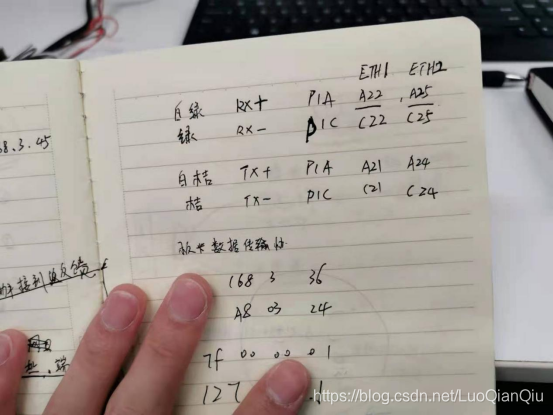 ETH1 ETH2
白绿 RX+ P1A A22 A25
绿 RX- P1C C22 C25
白桔 TX+ P1A A21 A24
桔 TX- P1C C21 C24
8.3.45
板卡数据传输
168 3 36
A8 03 24
7f 00 00 01
127 1
https://blog.csdn.net/LuoQianQiu